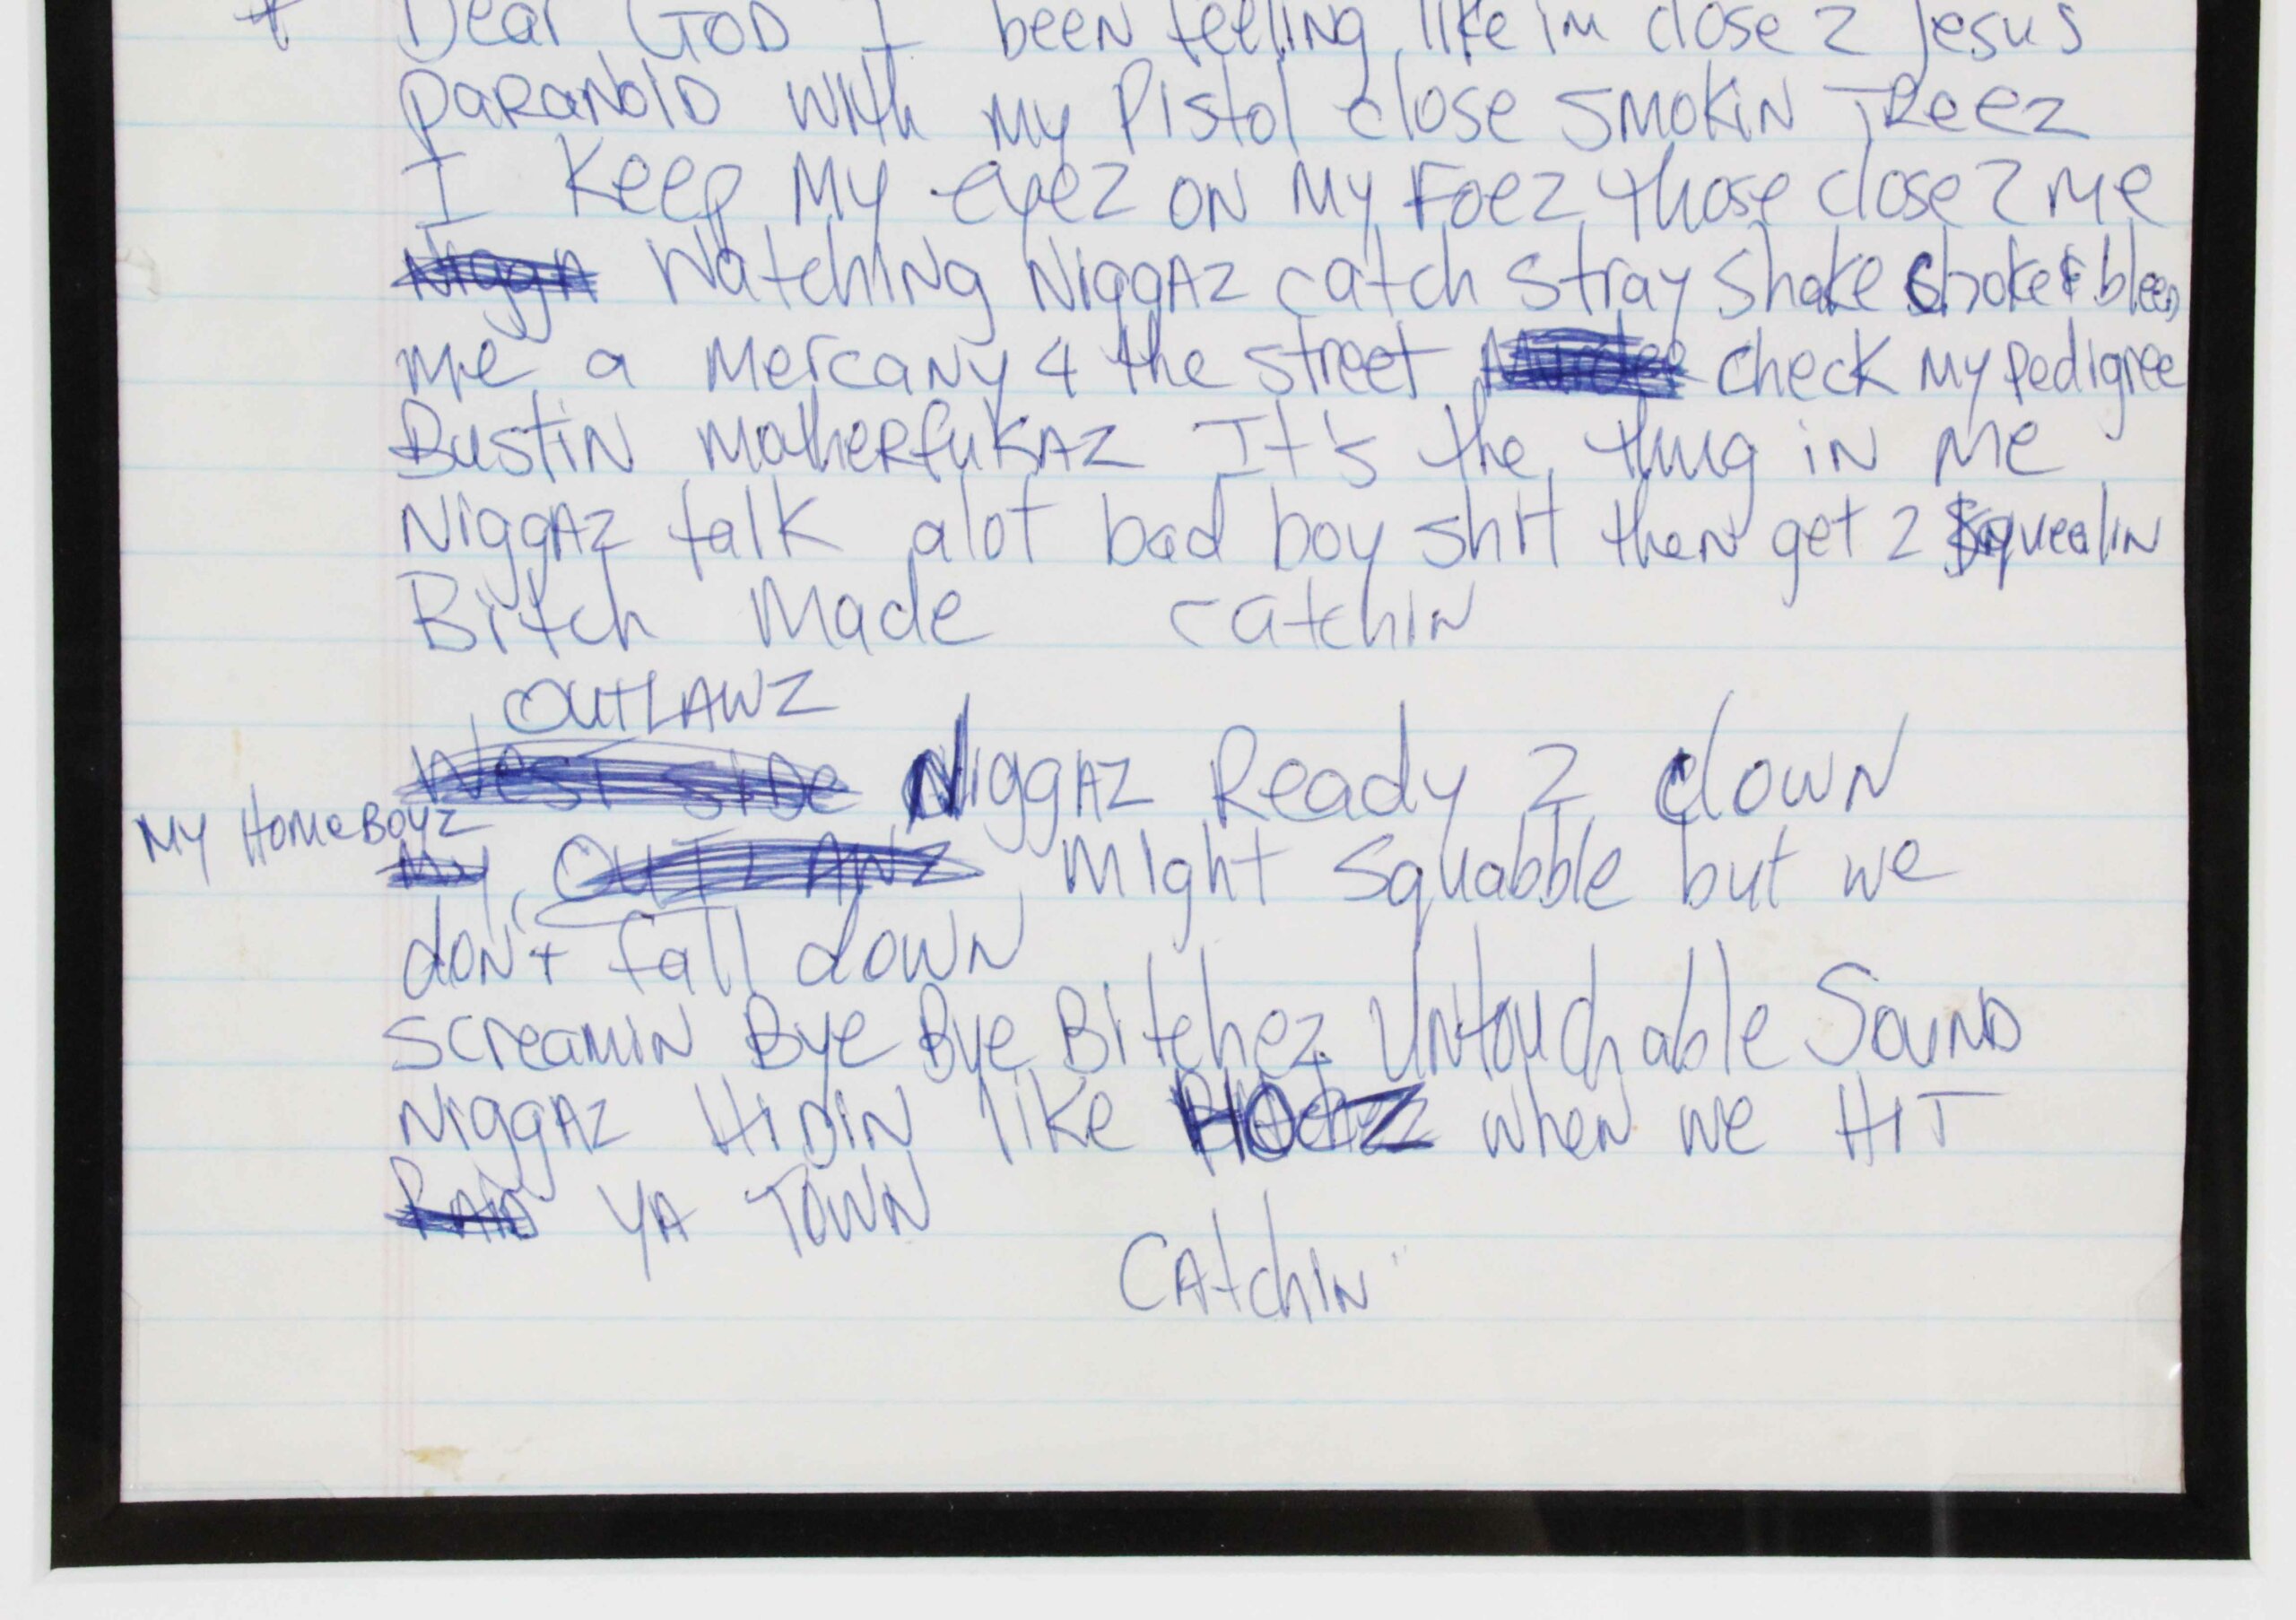 * Dear GOD I been feeling like im close 2 Jesus
PARANOID with my Pistol close smokin TReez
I Keep My eyez on My Foez those close 2 me
Nigga Watching NiggAz catch stray shake choke & bleed
me a mercany 4 the street check my pedigree
Bustin motherfukAz It's the thug in me
NiggAz talk alot bad boy shit then get 2 squealin
Bitch Made catchin
OUTLAWZ
West Side NiggAz Ready 2 clown
My HomeBoyz
My OUTLAWZ might squabble but we
don't fall down
screamin Bye Bye Bitchez Untouchable Sound
NiggAz HiDin like HOEZ when we HIT
RAID YA TOWN
CAtchin